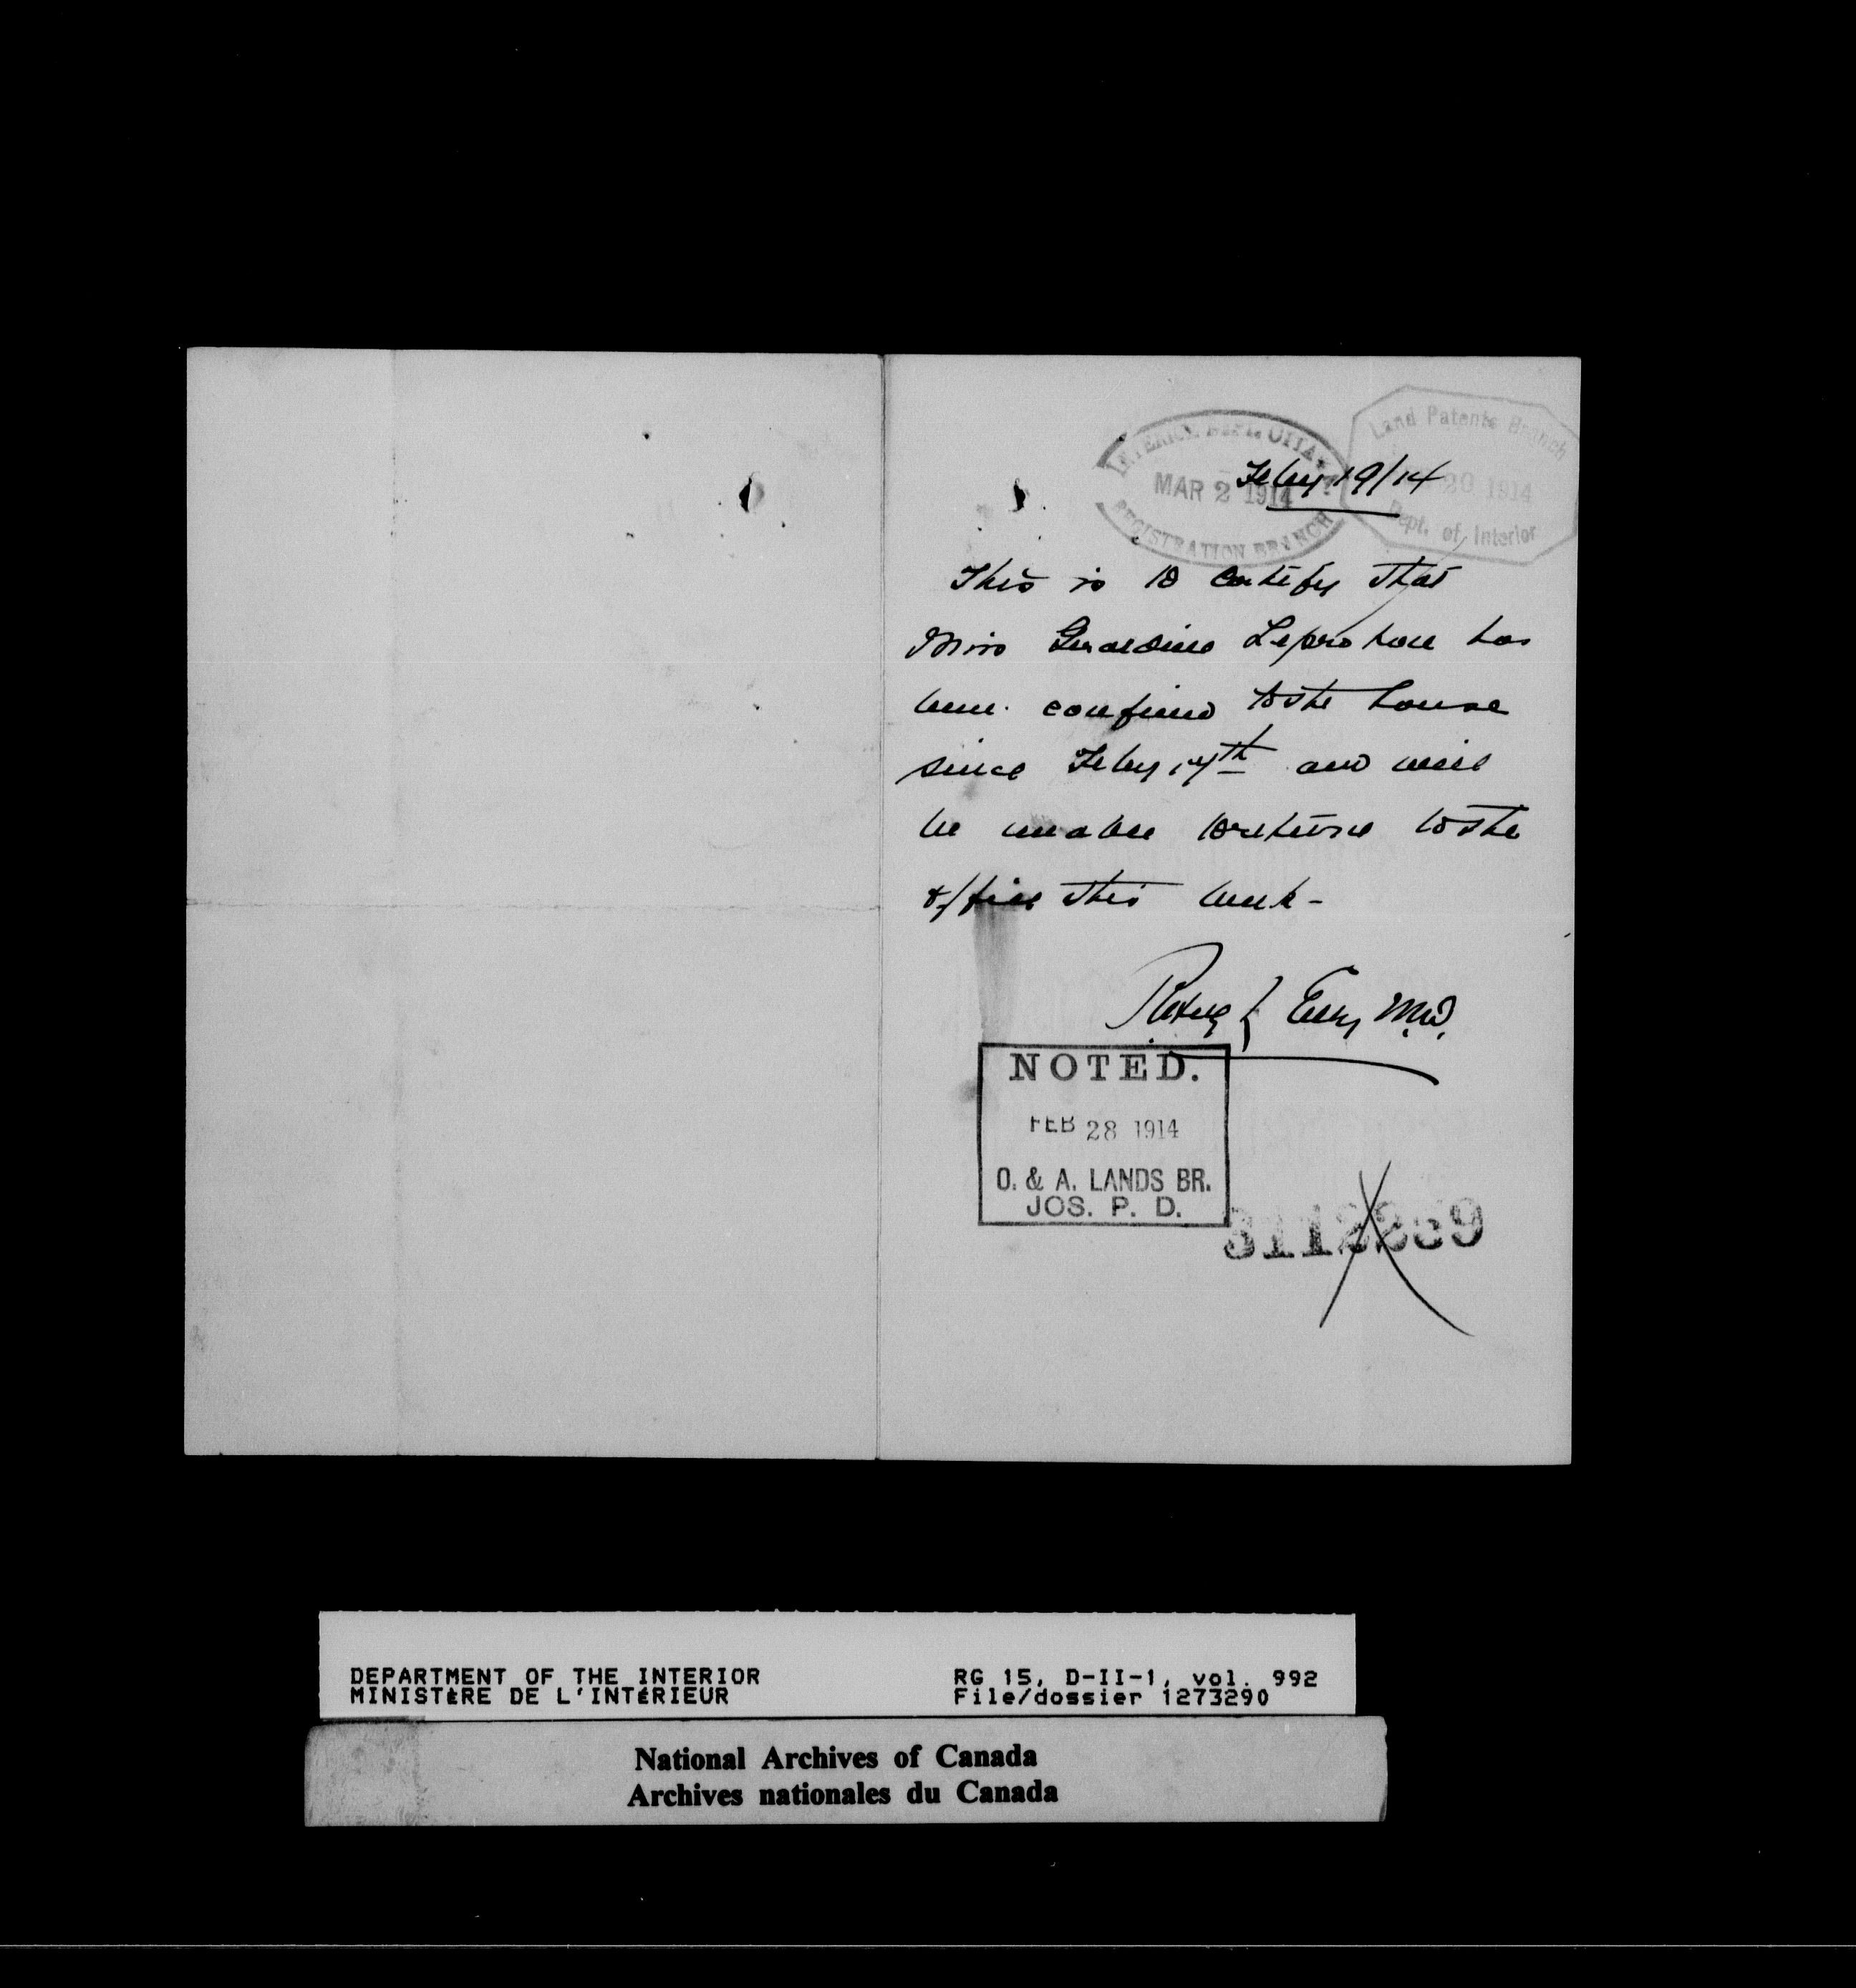 INTERIOR DEPT. OTTAWA
MAR 2 1914
REGISTRATION BRANCH
Land Patents Branch
20 1914
Dept. of Interior
Feby 19/14
This is to certify that
Miss Geraldine Leprohon has
been confined to the house
since Feby 17th and will
be unable to return to the
office this week -
Ely M.D.
NOTED.
FEB 28 1914
O. & A. LANDS BR.
JOS. P. D.
DEPARTMENT OF THE INTERIOR
MINISTÈRE DE L'INTÉRIEUR
RG 15, D-II-1, vol. 992
File/dossier 1273290
National Archives of Canada
Archives nationales du Canada